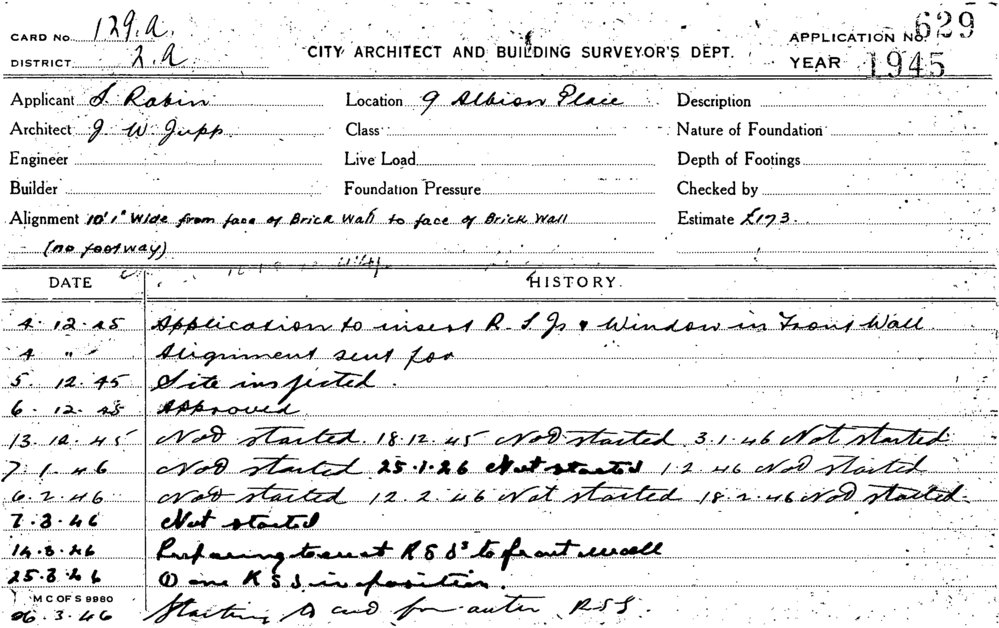 CARD NO. 129.A.
DISTRICT 2.A
CITY ARCHITECT AND BUILDING SURVEYOR'S DEPT.
APPLICATION NO. 629
YEAR 1945
Applicant S Rabin Location 9 Albion Place Description
Architect J. W. Jupp. Class Nature of Foundation
Engineer Live Load Depth of Footings
Builder Foundation Pressure Checked by
Alignment 10'1" Wide from face of Brick Wall to face of Brick Wall Estimate £173.
(no footway)
DATE HISTORY.
4. 12. 45 Application to insert R. S. Js & Window in Front Wall
4 " Alignment sent for
5. 12. 45 Site inspected.
6. 12. 45 Approved
13. 12. 45 Not started. 18.12.45 Not started. 3.1.46 Not started
7. 1. 46 Not started 25.1.46 Not started 1 2 46 Not started
6. 2. 46 Not started 12.2.46 Not started 18.2.46 Not started.
7.3.46 Not started
14.3.46 Preparing to erect RSJs to front wall
25.3.46 (1) one RSJ in position.
M C OF S 9980
26.3.46 Starting to for outer RSJ.